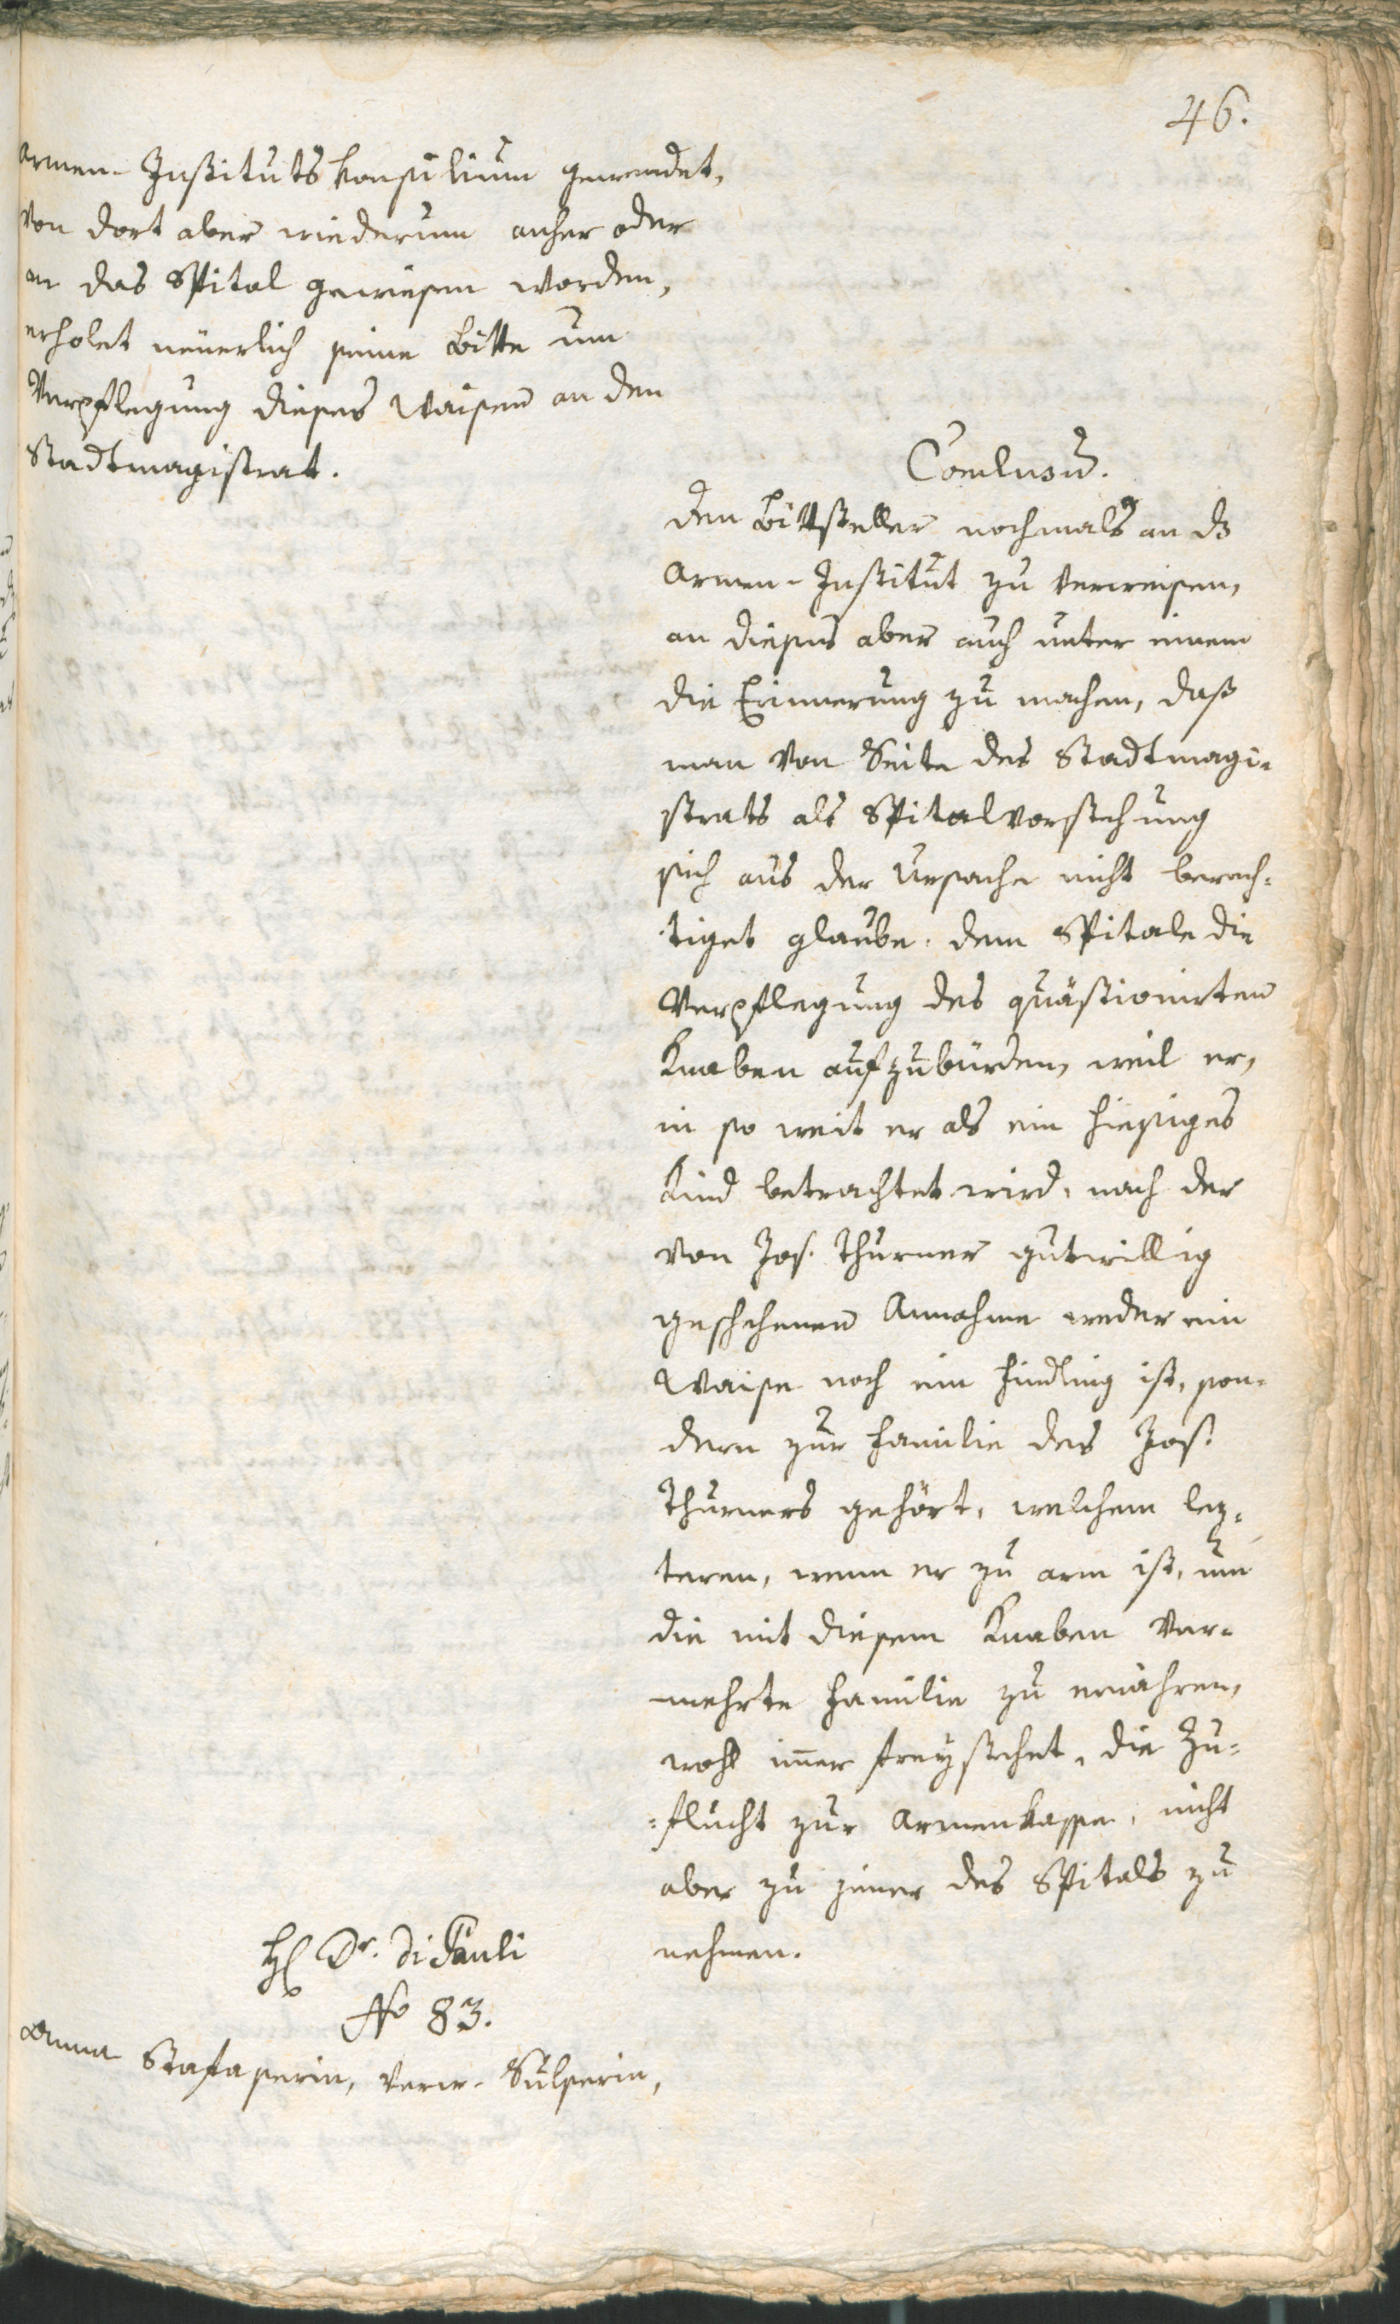 46.
Armen-Instituts konsilium gewendet,
von dort aber wiederum anher oder
an das Spital gewiesen worden,
erholet neuerlich seine Bitte um
Verpflegung dieses Waisen an den
Stadtmagistrat.
Conclusu.
Den Bittsteller nochmals an dz
Armen-Institut zu verweisen,
an dieses aber auch unter einem
die Erinnerung zu machen, daß
man von Seite des Stadtmagi-
strats als Spitalvorstehung
sich aus der Ursache nicht berech-
tiget glaube, dem Spitale die
Verpflegung des quästionirten
Knaben aufzubürden, weil er,
in so weit er als ein hiesiges
Kind betrachtet wird, nach der
von Jos. Thurner gutwillig
geschehenen Annahme weder ein
Waise noch ein Findling ist, son-
dern zur Familie des Jos.
Thurners gehört, welchem lez-
teren, wenn er zu arm ist, um
die mit diesem Knaben ver-
mehrte Familie zu ernähren,
wohl imer freystehet, die Zu-
=flucht zur Armenkasse, nicht
aber zu jener des Spitals zu
nehmen.
H Dr. Di Pauli
No 83.
Anna Stafaserin, verw. Sulserin,